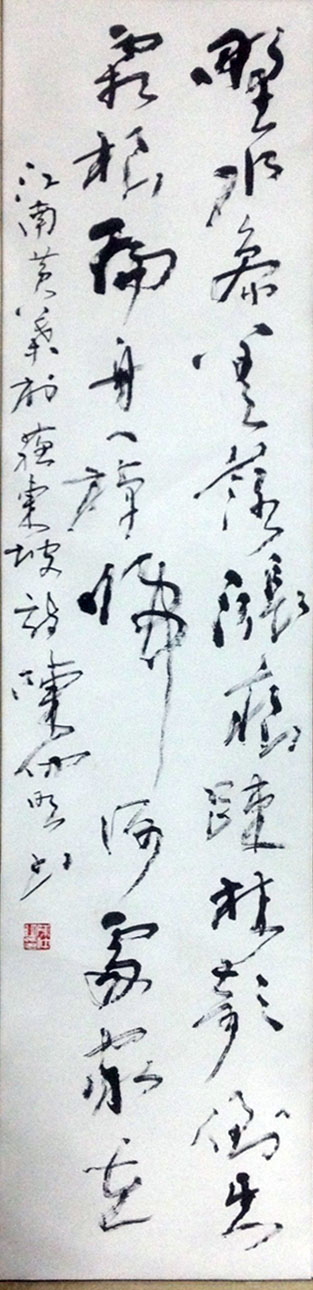 野水參差落漲痕疎林欹倒出
霜根扁舟一棹歸何處家在
江南黃葉村蘇東坡詩陳書